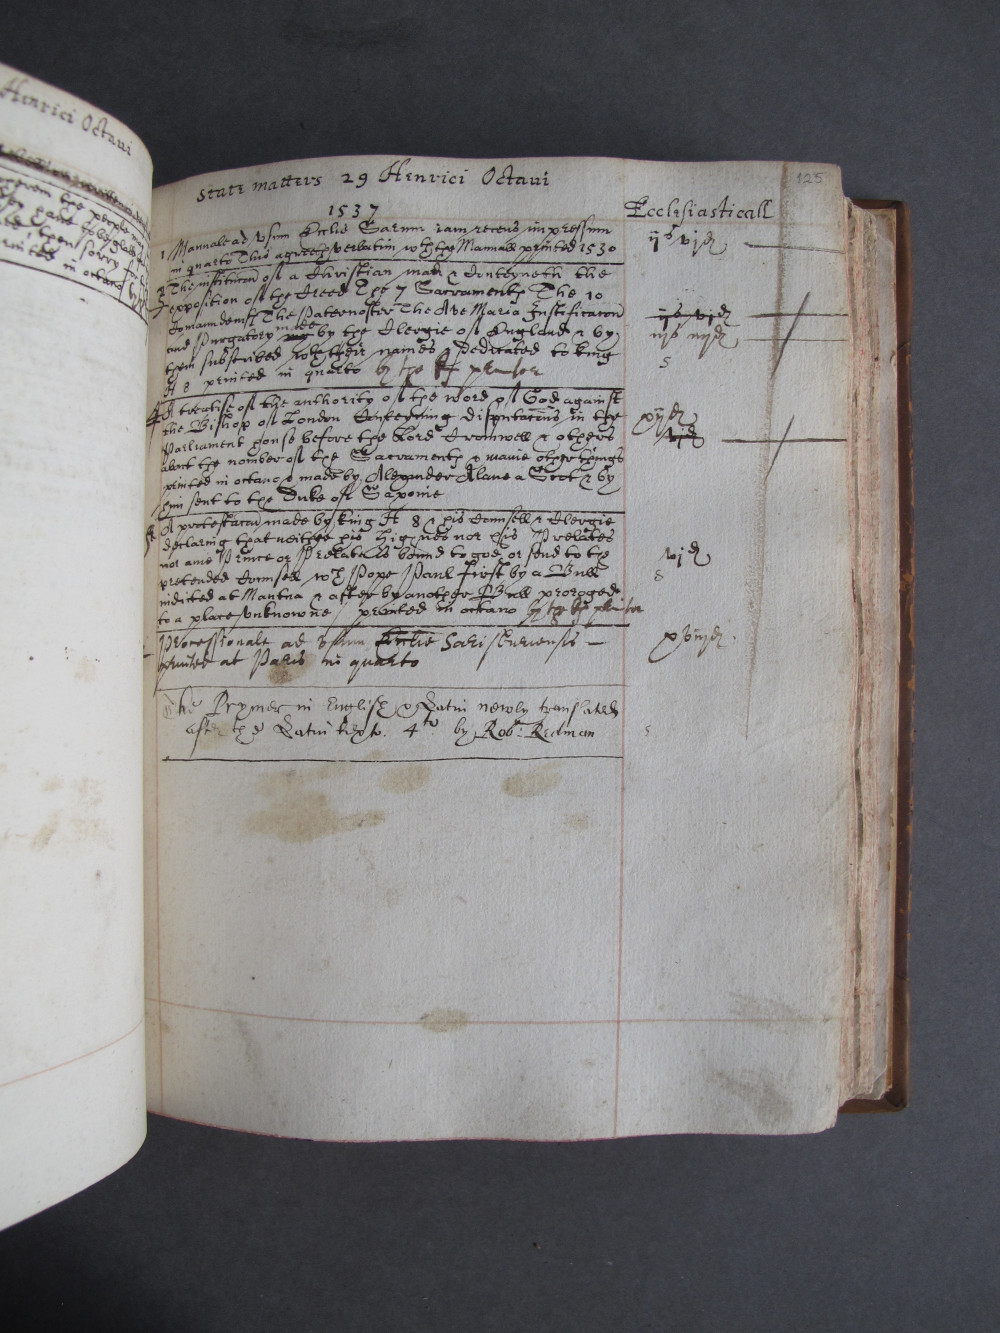 Henrici Octaui
the people
sorry for
printed in octano
125
State matters 29 Henrici Octaui
1537
Ecclesiasticall
1 Mannale ad vsum Ecclie Sarum iam recens impressum
in quarto This agreeth verbatim wth the Manuall printed 1530
ijs vjd
The institucon of a Christian man & conteyneth the
exposition of the Creed The 7 Sacramentes The 10
Comaundemts The Paternoster The Ave Maria Justificacon
and Purgatory made by the Clergie of England & by
them subscribed wth their names & Dedicated to king
H 8 printed in quarto by the k printer
ijs vjd
iijs iiijd
S
4 A treatise of the authority of the word of God against
the Bishop of London conserning disputacons in the
Parliament house before the Lord Cromwell & others
abot the nomber of the Sacramentes & manie other things
printed in octano & made by Alexander Alane a Scot & by
him sent to the Duke of Saxonie
xijd
vjd
A protestacon made by king H 8 & his Counsell & Clergie
declaring that neither his Highnes nor his Prelates
nor anie Prince or Prelate is bound to goe or send to the
pretended Counsell wch Pope Paul first by a Bull
indited at Mantua & after by another Bull proroged
to a place vnknowne / printed in octano by the ks printer
vjd
S
Processionale ad vsum Ecclie Sarisburiensis –
printed at Paris in quarto
xviijd
The Prymer in English & Latin newly translated
after the Latin text. 4to by Rob: Redman
S